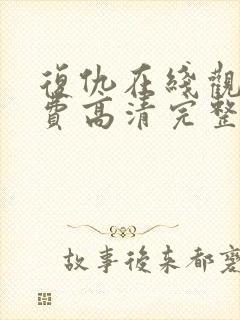 復仇在綫觀
費高清完整
故事後来都